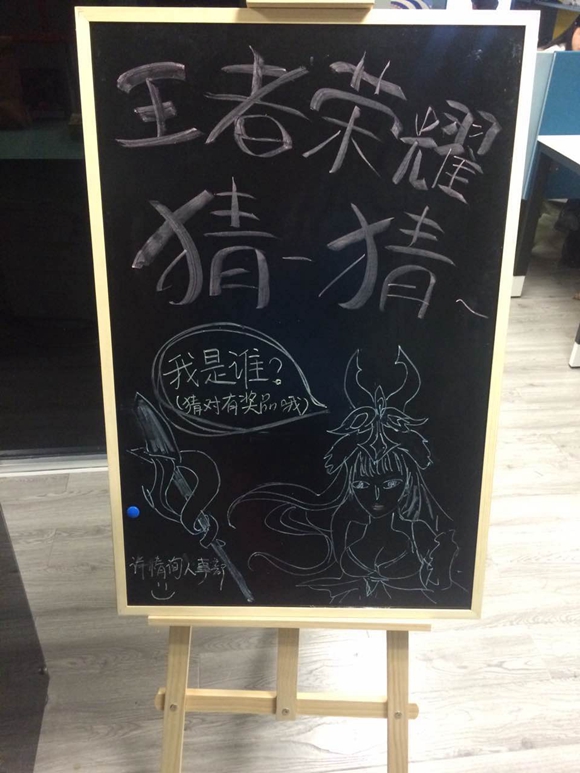 王者荣耀
猜一猜~
我是谁?
(猜对有奖品哦)
详情询人事部